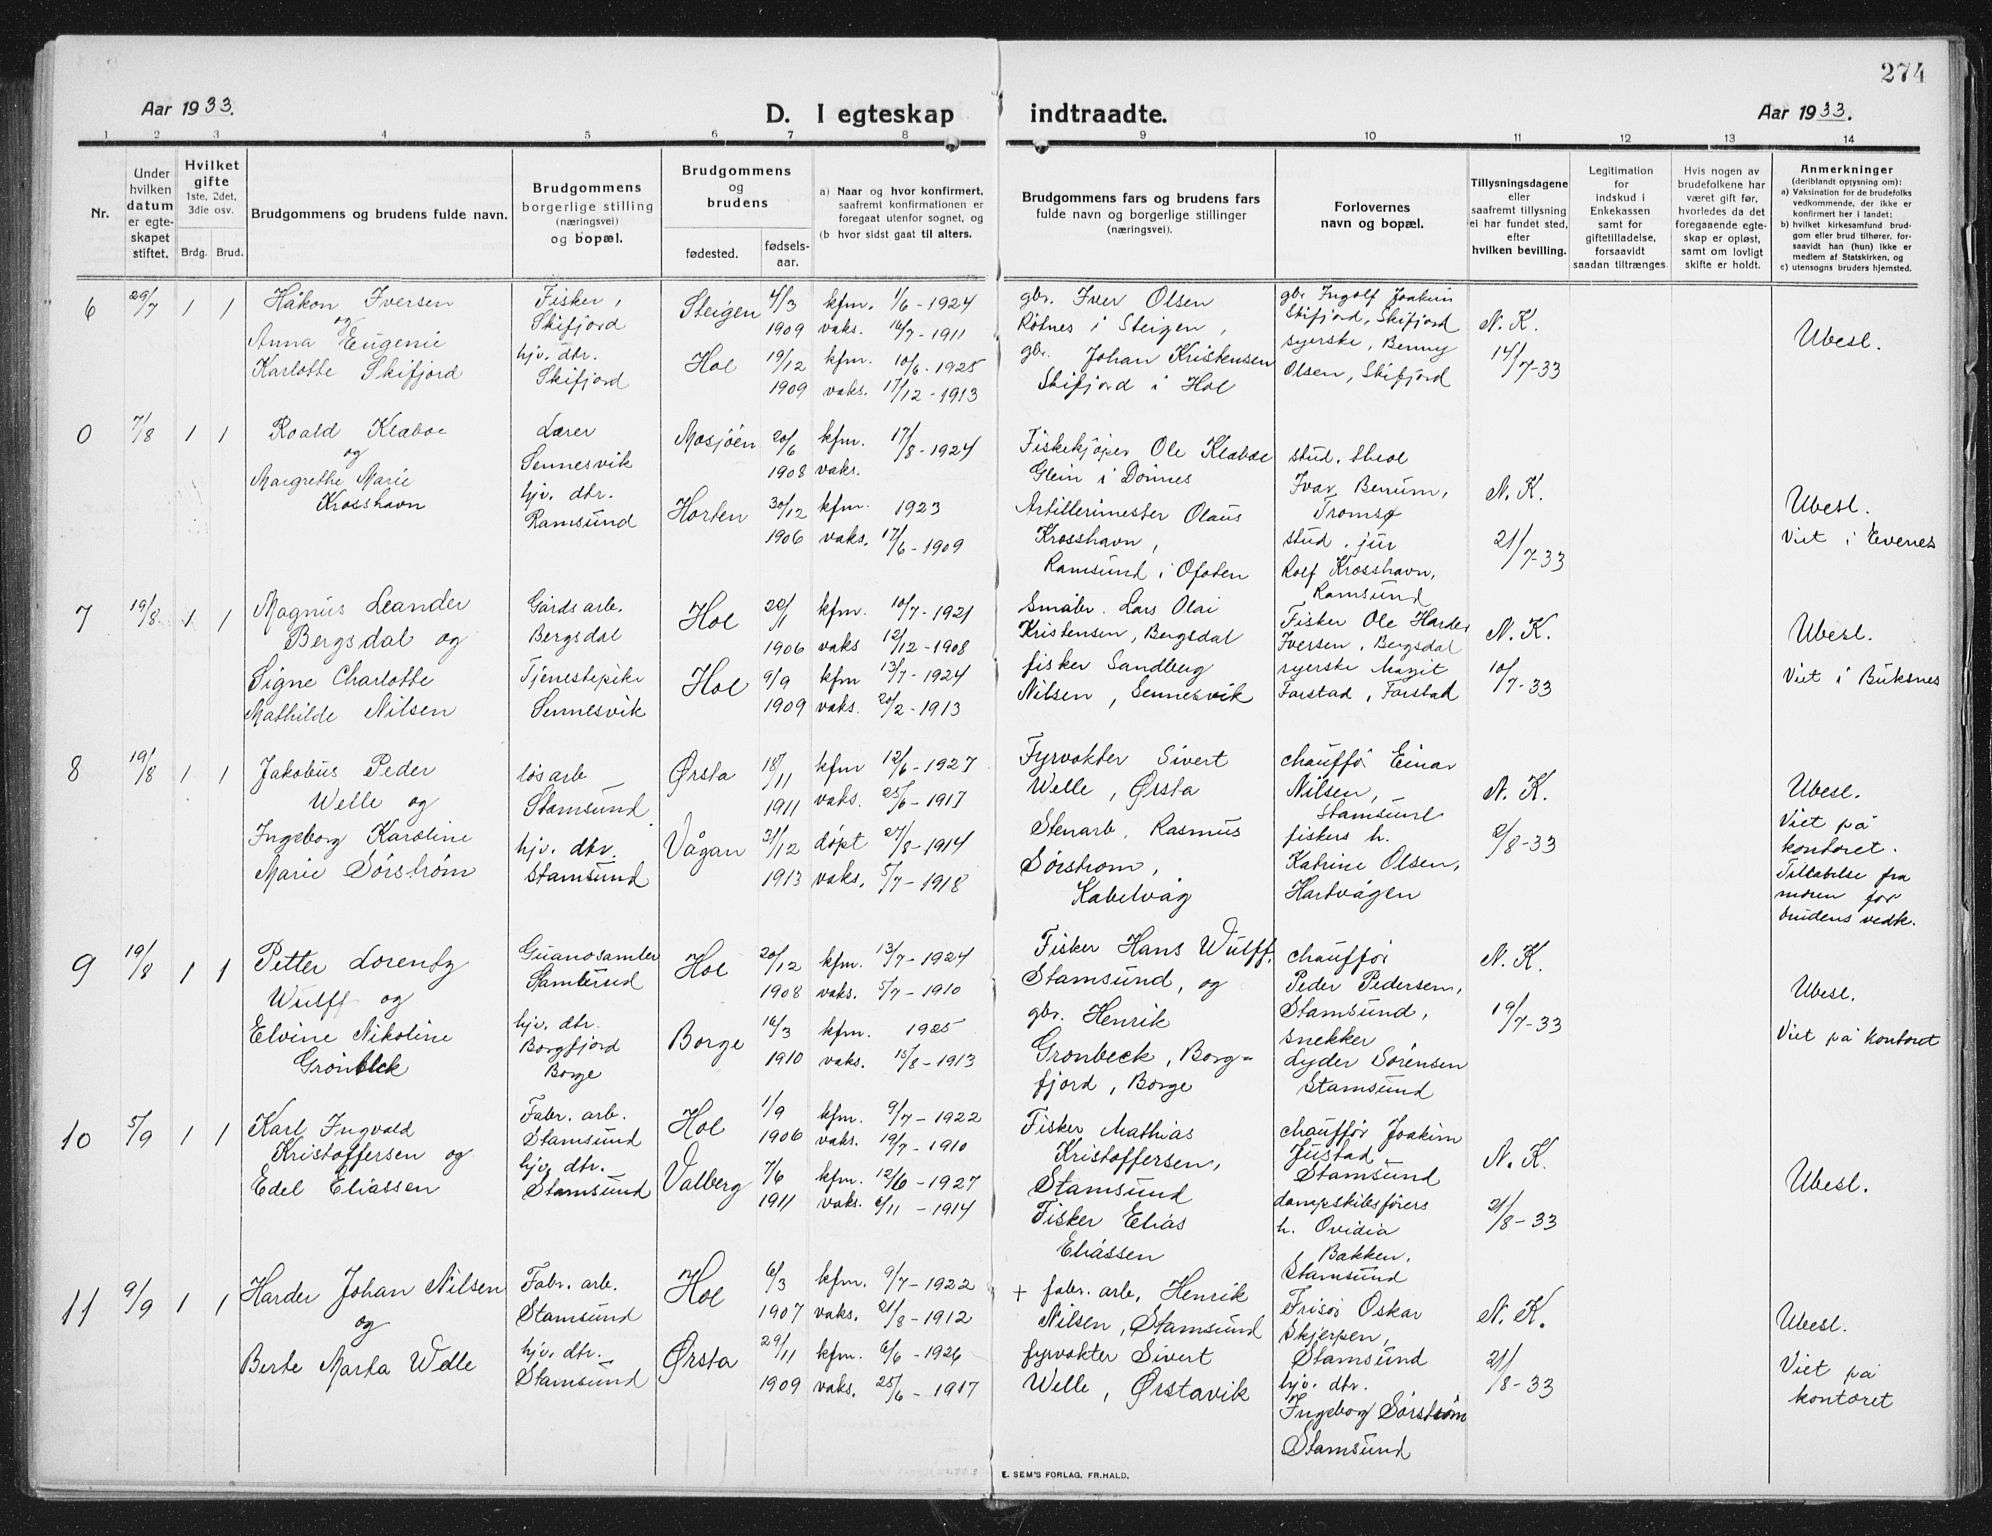 274
Aar 1933.
D. I egteskap indtraadte.
Aar 1933.
1 2 3 4 5 6 7 8 9 10 11 12 13 14
Nr.
Under hvilken datum er egteskapet stiftet.
Hvilket gifte 1ste, 2det, 3die osv.
Brdg. Brud.
Brudgommens og brudens fulde navn.
Brudgommens borgerlige stilling (næringsvei) og bopæl.
Brudgommens og brudens
fødested.
fødsels-aar.
a) Naar og hvor konfirmert, saafremt konfirmationen er foregaat utenfor sognet, og
(b hvor sidst gaat til alters.
Brudgommens fars og brudens fars fulde navn og borgerlige stillinger (næringsvei).
Forlovernes navn og bopæl.
Tillysningsdagene eller saafremt tillysning ei har fundet sted, efter hvilken bevilling.
Legitimation for indskud i Enkekassen samt for giftetilladelse, forsaavidt saadan tiltrænges
Hvis nogen av brudefolkene har været gift før, hvorledes da det foregaaende egteskap er opløst, samt om lovligt skifte er holdt.
Anmerkninger
(deriblandt opjysning om):
a) Vaksination for de brudefolks vedkommende, der ikke er konfirmert her i landet;
b) hvilket kirkesamfund brudgom eller brud tilhører, forsaavidt han (hun) ikke er medlem af Statskirken, og
c) utensogns bruders hjemsted.
6 29/7 1 1
Håkon Iversen
og
Anna Eugenie
Karlotte Skifjord
Fisker,
Skifjord
hjv. dtr.
Skifjord
Steigen 4/3 1909
Hol 19/12 1909
kfm. 1/6 - 1924
vaks. 16/7 - 1911
kfm. 10/6 - 1925
vaks. 17/12 - 1913
gbr. Iver Olsen
Rötnes i Steigen,
gbr. Johan Kristensen
Skifjord i Hol
gbr. Ingolf Joakim
Skifjord, Skifjord
syerske, Benny
Olsen, Skifjord
N. K.
14/7-33
Ubesl.
0 7/8 1 1
Roald Klaboe
og
Margrethe Marie
Krosshavn
Lærer
Sennesvik
hjv. dtr.
Ramsund
Mosjöen 20/6 1908
Horten 30/12 1906
kfm. 17/8 - 1924
vaks.
kfm. 1923
vaks. 17/6 - 1909
Fiskekjöper Ole Klaboe
Glein i Dönnes
Artillerimester Olaus
Krosshavn,
Ramsund i Ofoten
stud. theol
Ivar Benum,
Tromsø
stud. jur
Rolf Krosshavn,
Ramsund
N. K.
21/7-33
Ubesl.
Viet i Evenes
7 19/8 1 1
Magnus Leander
Bergsdal og
Signe Charlotte
Mathilde Nilsen
Gårdsarb.
Bergsdal
Tjenestepike
Sennesvik
Hol 20/11 1906
Hol 9/9 1909
kfm. 10/7 - 1921
vaks 12/12 - 1908
kfm 13/7 - 1924
vaks. 20/2 - 1913
Småbr. Lars Olai
Kristensen, Bergsdal
fisker Sandberg
Nilsen, Sennesvik
Fisker Ole Harder
Iversen, Bergsdal
syerske Magit
Farstad, Farstad
N. K.
10/7-33
Ubesl.
Viet i Buksnes
8 19/8 1 1
Jakobus Peder
Welle og
Ingeborg Karoline
Marie Sörström
lösarb
Stamsund
hjv. dtr.
Stamsund
Ørsta 18/11 1911
Vågan 31/12 1913
kfm 12/6 - 1927
vaks. 25/6 - 1917
döpt 27/8 - 1914
vaks. 5/7 - 1918
Fyrvokter Sivert
Welle, Ørsta
Stenarb. Rasmus
Sörstrom,
Kabelvåg
chaufför Einar
Nilsen,
Stamsund
fiskers h.
Katrine Olsen,
Hartvågen
N. K.
2/8-33
Ubesl.
Viet på
kontoret.
Tillatelse fra
moren for
brudens vedk.
9 19/8 1 1
Petter Lorentz
Wulff og
Elvine Nikoline
Grönbeck
Guanosamler
Stamsund
hjv. dtr.
Borgfjord
Borge
Hol 20/12 1908
Borge 16/3 1910
kfm. 13/7 - 1924
vaks. 5/7 - 1910
kfm. 1925
vaks. 15/8 - 1913
Fisker Hans Wulff,
Stamsund, og
gbr. Henrik
Gronbeck, Borg-
fjord, Borge
chaufför
Peder Pedersen,
Stamsund,
snekker
Lyder Sörensen
Stamsund
N. K.
19/7-33
Ubesl.
Viet på kontoret
10 5/9 1 1
Karl Ingvald
Kristoffersen og
Edel Eliassen
Fabr. arb.
Stamsund
hjv. dtr.
Stamsund
Hol 1/9 1906
Valberg 7/6 1911
kfm. 9/7 - 1922
vaks. 19/7 - 1910
kfm. 12/6 - 1927
vaks. 6/11 - 1914
Fisker Mathias
Kristoffersen,
Stamsund
Fisker Elias
Eliassen
chaufför Joakim
Justad,
Stamsund
dampskibsförers
h. Ovidia
Bakken,
Stamsund
N. K.
21/8-33
Ubesl.
11 9/9 1 1
Harder Johan Nilsen
og
Berte Marta Welle
Fabr. arb.
Stamsund
hjv. dtr.
Stamsund
Hol 6/3 1907
Ørsta 29/11 1909
kfm. 9/7 - 1922
vaks. 21/8 - 1912
kfm. 6/6 - 1926
vaks. 25/6 - 1917
+ fabr. arb. Henrik
Nilsen, Stamsund
fyrvokter Sivert
Welle, Ørstavik
Frisör Oskar
Skjerpen,
Stamsund
hjv. dtr.
Ingebog Sörström
Stamsund
N. K.
21/8-33
Ubesl.
Viet på
kontoret
E. SEM'S FORLAG, FR.HALD.